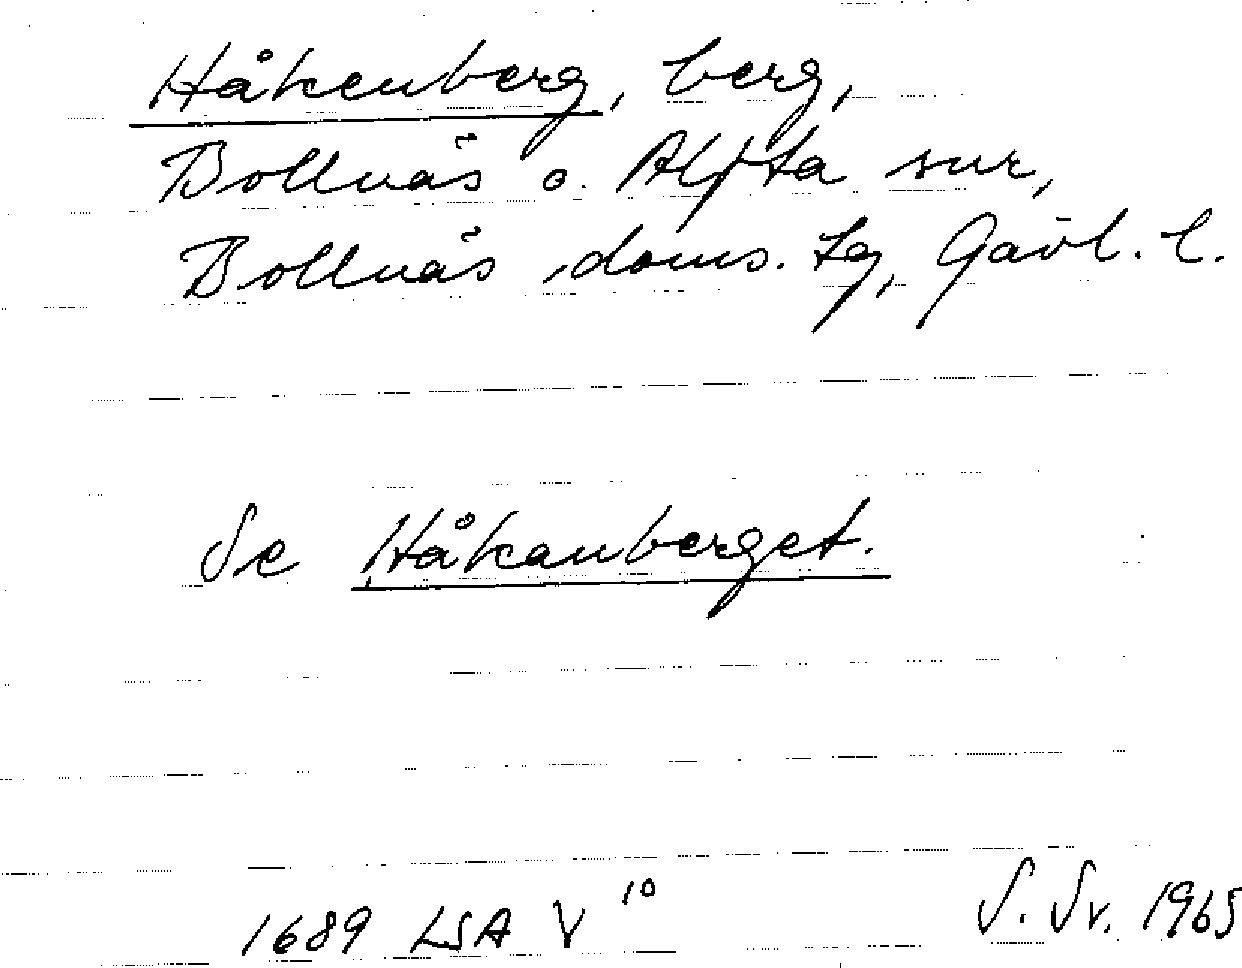 Håkenberg, berg,
Bollnäs o. Alfta snr,
Bollnäs doms. tg, Gävl. l.
Se Håkanberget.
1689 LSA V 10
S. Sv. 1965